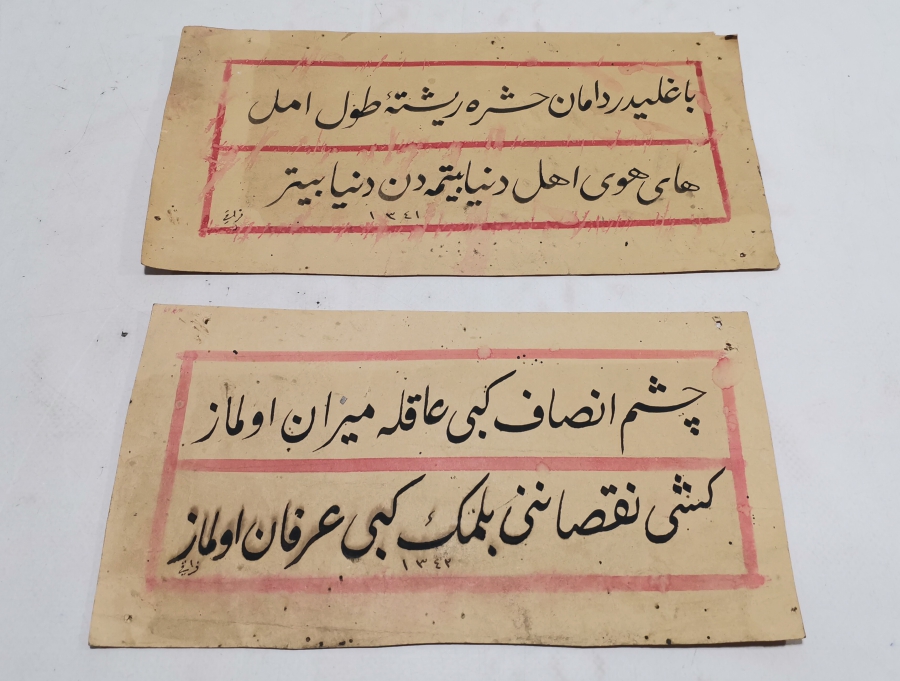 باغليدر دامان حشره ريشتهٔ طول امل
هاى هوى اهل دنيا بيتمه دن دنيا بيتر
١٣٤١
چشم انصاف كبى عاقله ميزان اولماز
كشى نقصاننى بلمك كبى عرفان اولماز
١٣٤٢